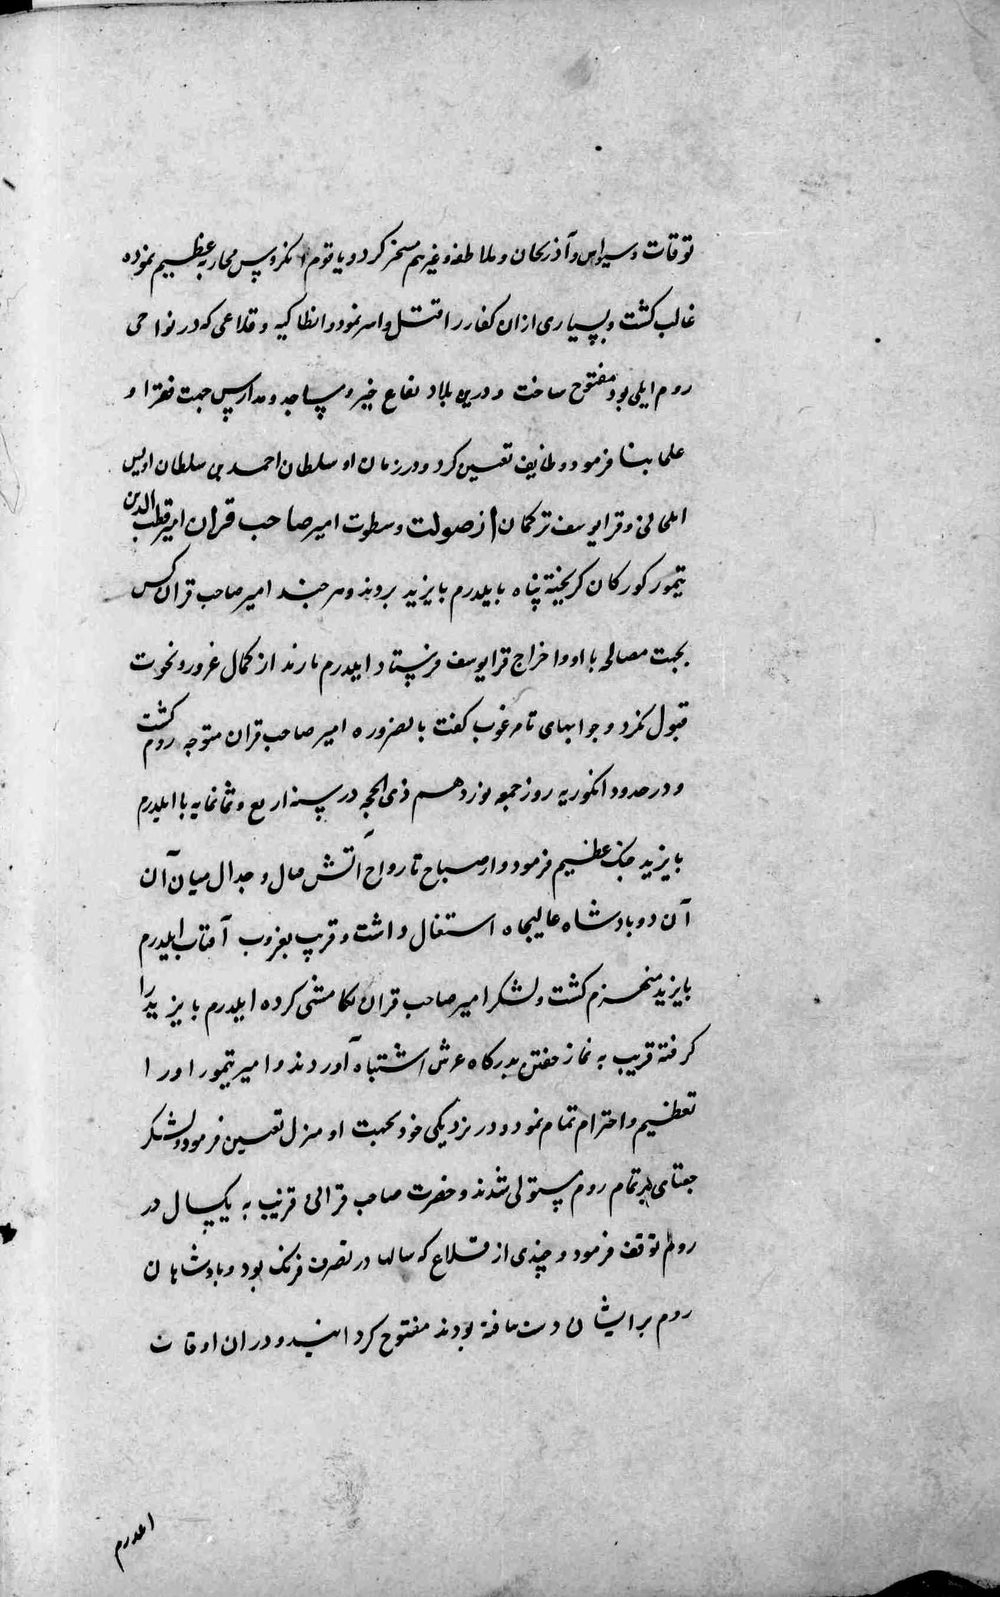 توقات و سیواس و آذربجان و ملاطفه و غیرهم مسخر کرد و با قوم انکروس محاربه عظیم نموده
غالب کشت و بسیاری ازان کفار را قتل و اسر نمود و انطاکیه و قلاعی که در نواحی
روم ایلی بود مفتوح ساخت و درین بلاد بقاع خیر و مساجد و مدارس جهت فقرا و
علما بنا فرمود و وظایف تعیین کرد و در زمان او سلطان احمد بن سلطان اویس
ایلخانی و قرا یوسف ترکمان از صولت و سطوت امیر صاحب قران امیر قطب الدین
تیمور کورکان کریخته پناه بایلدرم بایزید بردند و هر چند امیر صاحب قران کس
بجهت مصالحه با او و اخراج قرا یوسف فرستاد ایلدرم بایزید از کمال غرور و نخوت
قبول نکرد و جوابهای نامرغوب کفت بالضروره امیر صاحب قران متوجه روم کشت
و در حدود انکوریه روز جمعه نوزدهم ذی الحجه در سنه اربع و ثمانمایه با ایلدرم
بایزید جنک عظیم فرمود و از صباح تا رواح آتش قتال و جدال میان آن
آن دو بادشاه عالیجاه اشتغال داشت و قریب بغروب آفتاب ایلدرم
بایزید منهزم کشت و لشکر امیر صاحب قران تکامشی کرده ایلدرم بایزید را
کرفته قریب به نماز خفتن بدرکاه عرش اشتباه آوردند و امیر تیمور او را
تعظیم و احترام تمام نمود و در نزدیکی خود بجهت او منزل تعیین فرمود و لشکر
جغتای بر تمام روم مستولی شدند و حضرت صاحب قرانی قریب به یکسال در
روم توقف فرمود و چندی از قلاع که سالها در تصرف فرنک بود و بادشاهان
روم بر ایشان دست نیافته بودند مفتوح کردانید و در ان اوقات